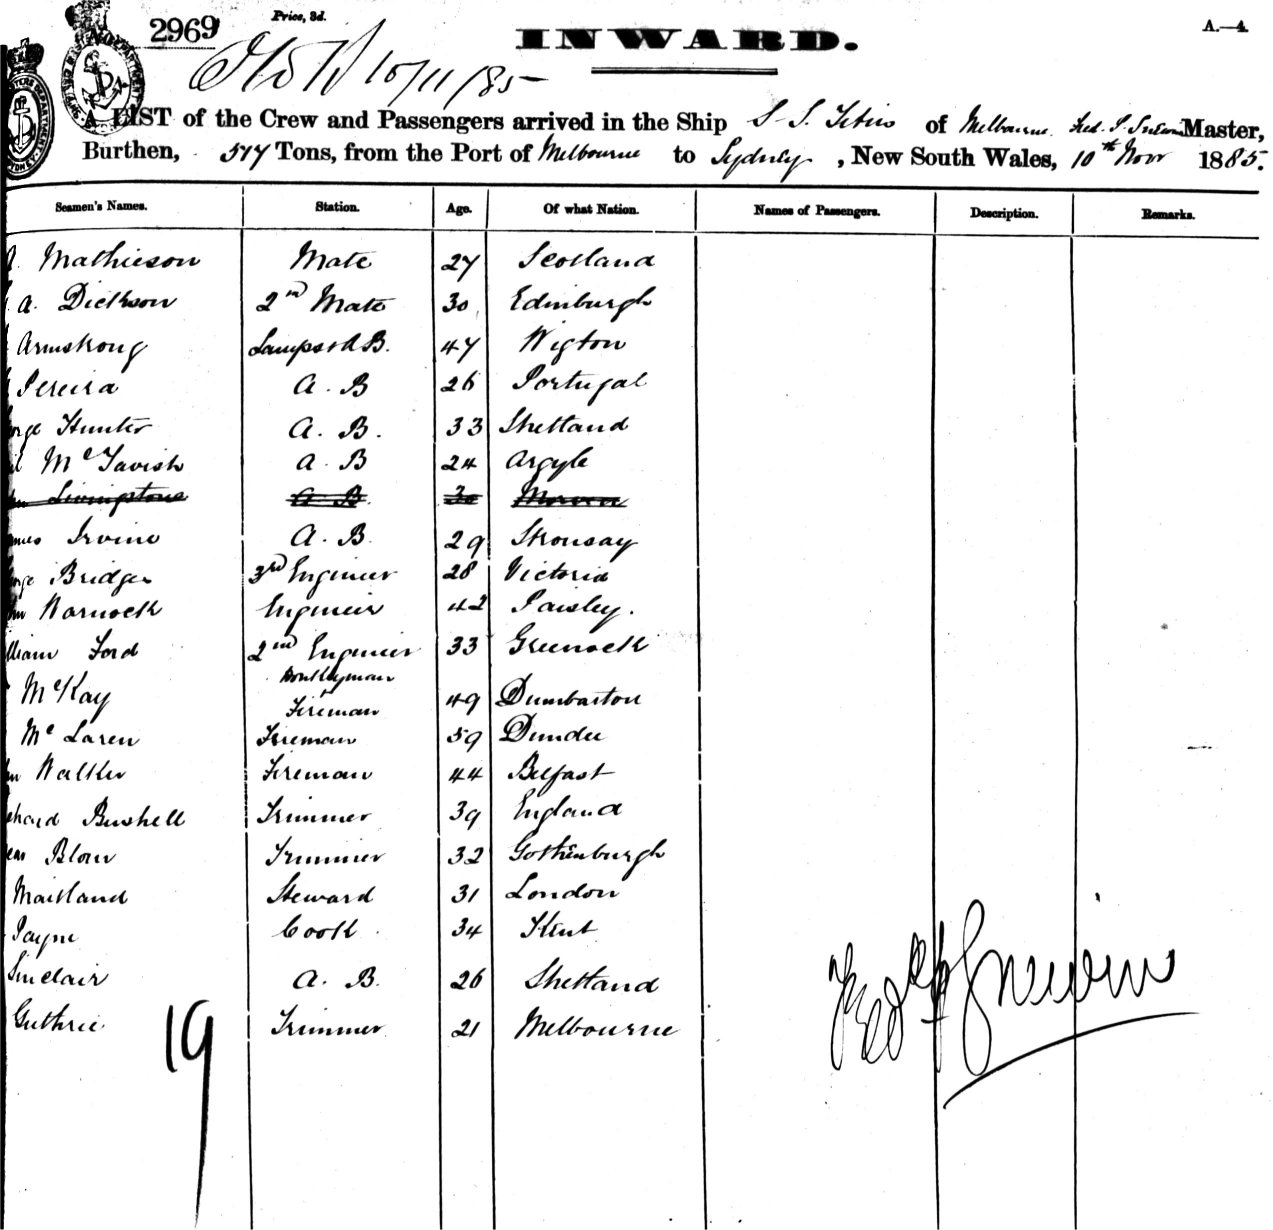 Price, 3d.
2969
INWARD.
A.—4
10/11/85
A LIST of the Crew and Passengers arrived in the Ship S. S. of Melbourne Fred. Master,
Burthen, 577 Tons, from the Port of Melbourne to Sydney, New South Wales, 10th Novr 1885.
Seamen's Names. Station. Age. Of what Nation. Names of Passengers. Description. Remarks.
Mathieson Mate 27 Scotland
A. Dickson 2nd Mate 30 Edinburgh
Armstrong Lamps & A B. 47 Wigton
Pereira A. B 26 Portugal
orge Hunter A. B. 33 Shetland
Mc Tavish A. B 24 Argyle
Livingstone A B 30 Morven
ames Irvine A. B. 29 Stronsay
orge Bridges 3rd Engineer 28 Victoria
Warnock Engineer 42 Paisley.
illiam Ford 2nd Engineer 33 Greenock
McKay Donkeyman
Fireman 49 Dumbarton
Mc Laren Fireman 59 Dundee
Walker Fireman 44 Belfast
ichard Bushell Trimmer 39 England
Blom Trimmer 32 Gothenburgh
Maitland Steward 31 London
Payne Cook 34 Kent
Sinclair A. B. 26 Shetland
Guthrie Trimmer 21 Melbourne
19